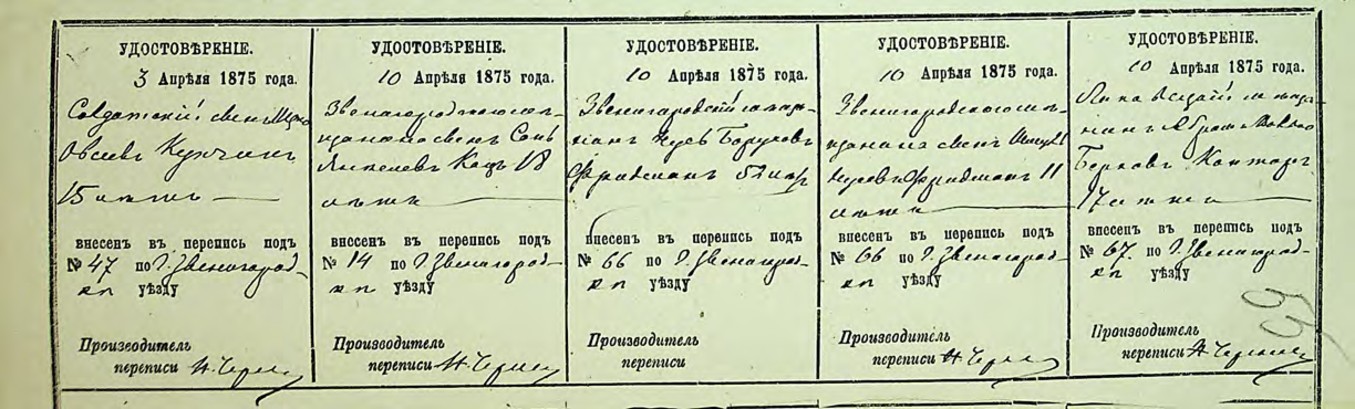 УДОСТОВѢРЕНІЕ.
3 Апрѣля 1875 года.
Солдатскій сынъ
Овсеев
15 лѣтъ
внесенъ въ перепись подъ
№ 47 по г. Звенигород-
кѣ уѣзду
Производитель
переписи Н.
УДОСТОВѢРЕНІЕ.
10 Апрѣля 1875 года.
сынъ
Янкелевъ Кацъ 18
лѣтъ
внесенъ въ перепись подъ
№ 14 по г. Звенигород-
кѣ уѣзду
Производитель
переписи Н.
УДОСТОВѢРЕНІЕ.
10 Апрѣля 1875 года.
Звенигородскій мѣща-
нинъ Борухов
Фридманъ 52 лѣт
внесенъ въ перепись подъ
№ 66 по г. Звенигород-
кѣ уѣзду
Производитель
переписи
УДОСТОВѢРЕНІЕ.
10 Апрѣля 1875 года.
Звенигородского мѣ-
щанина сынъ
Фридманъ 11
лѣтъ
внесенъ въ перепись подъ
№ 66 по г. Звенигород-
кѣ уѣзду
Производитель
переписи Н.
УДОСТОВѢРЕНІЕ.
10 Апрѣля 1875 года.
мѣща-
нинъ Абрам
Берковъ Контаръ
17 лѣтъ
внесенъ въ перепись подъ
№ 67. по г. Звенигород-
кѣ уѣзду
Производитель
переписи Н.